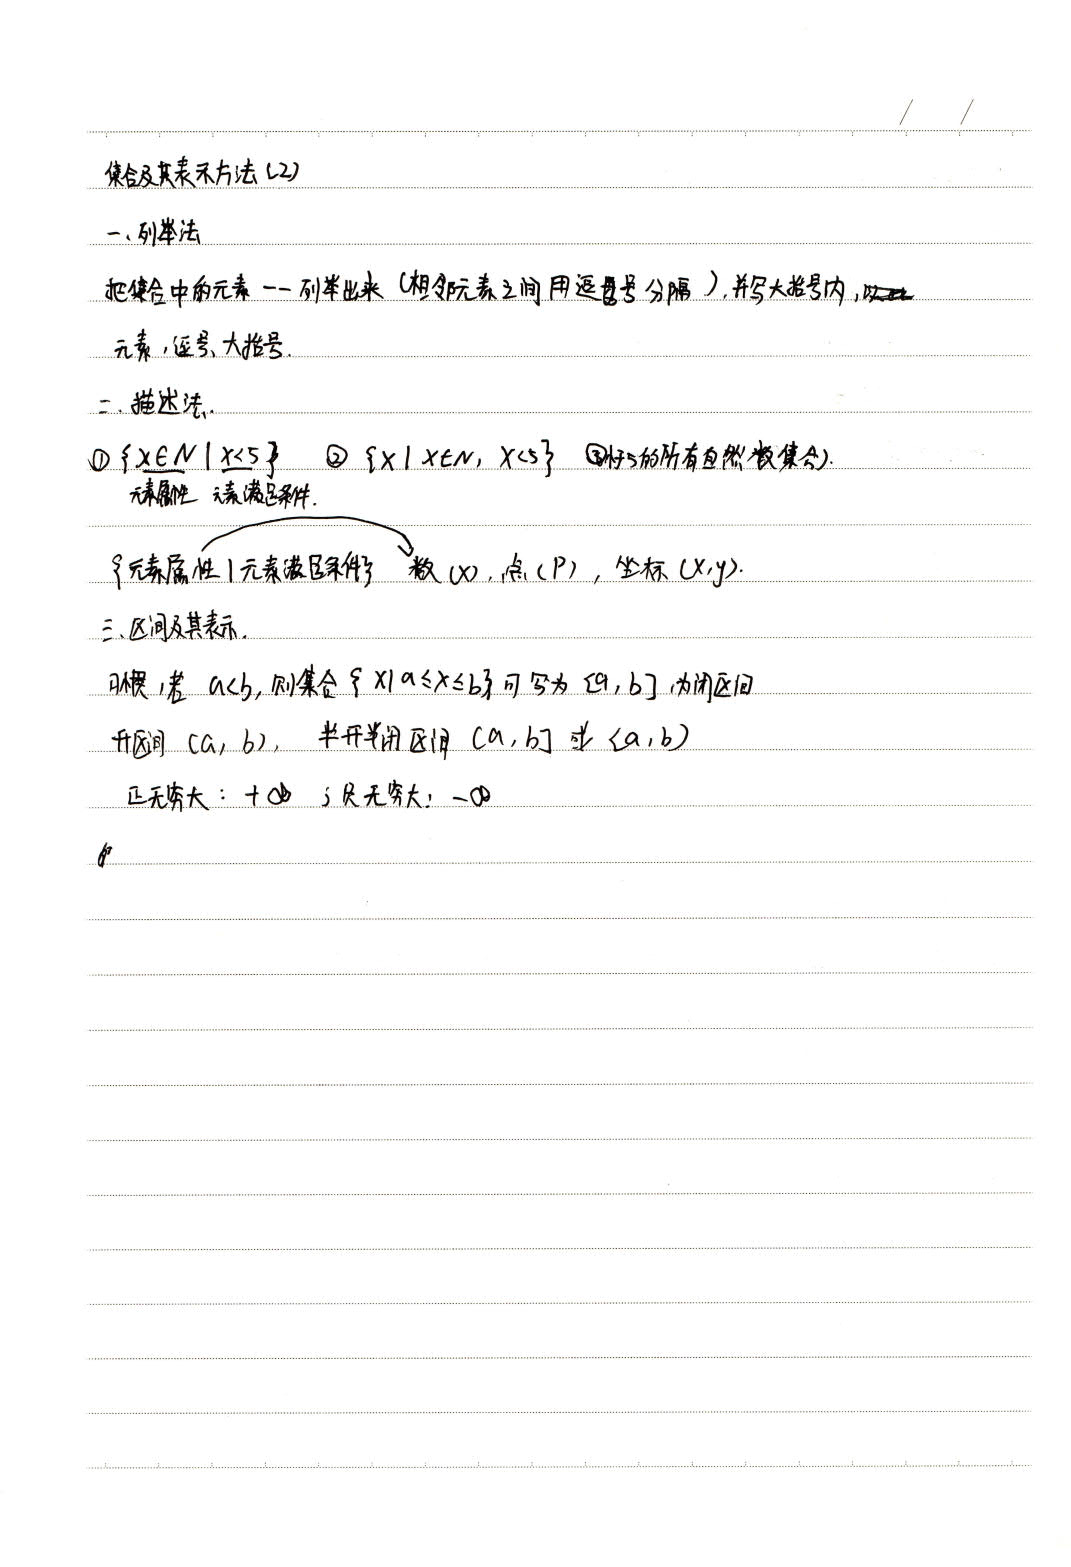 集合及其表示方法(2)
一、列举法
把集合中的元素一一列举出来(相邻元素之间用逗号分隔),并写大括号内,
元素,逗号、大括号.
二、描述法.
① {x∈N | x<5} ② {x | x∈N, x<5} ③小于5的所有自然数集合}.
元素属性 元素满足条件.
{元素属性 | 元素满足条件} 数(x),点(P),坐标(x,y).
三、区间及其表示.
习惯,若 a<b,则集合{x|a≤x≤b}可写为[a,b],为闭区间
开区间 (a,b), 半开半闭区间 (a,b] 或 [a,b)
正无穷大: +∞ ;负无穷大: -∞